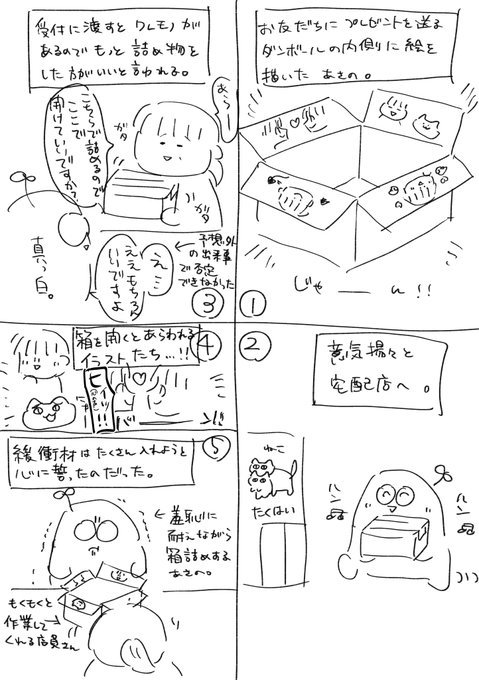 お友だちに プレゼントを送る
ダンボールの内側に絵を
描いた あさの。
じゃーーん!!
①
②
意気揚々と
宅配店へ。
ねこ
たくはい
ハンッ
ハンッ
受付に渡すと ワレモノが
あるので もっと 詰め物を
した方がいいと 言われる。
あらー
ガタ
ガタ
こちらで詰めるので
ここで
開けていいですか?
真っ白。
え…
ええもちろん
いいですよ
←予想外
の出来事
で否定
できなかった
③
④
箱を開くとあらわれる
イラストたち…!!
ヒイッ!!
バーーン!!
⑤
緩衝材は たくさん入れようと
心に誓ったのだった。
←羞恥心に
耐えながら
箱詰めする
あさの。
もくもくと
作業して→
くれる店員さん